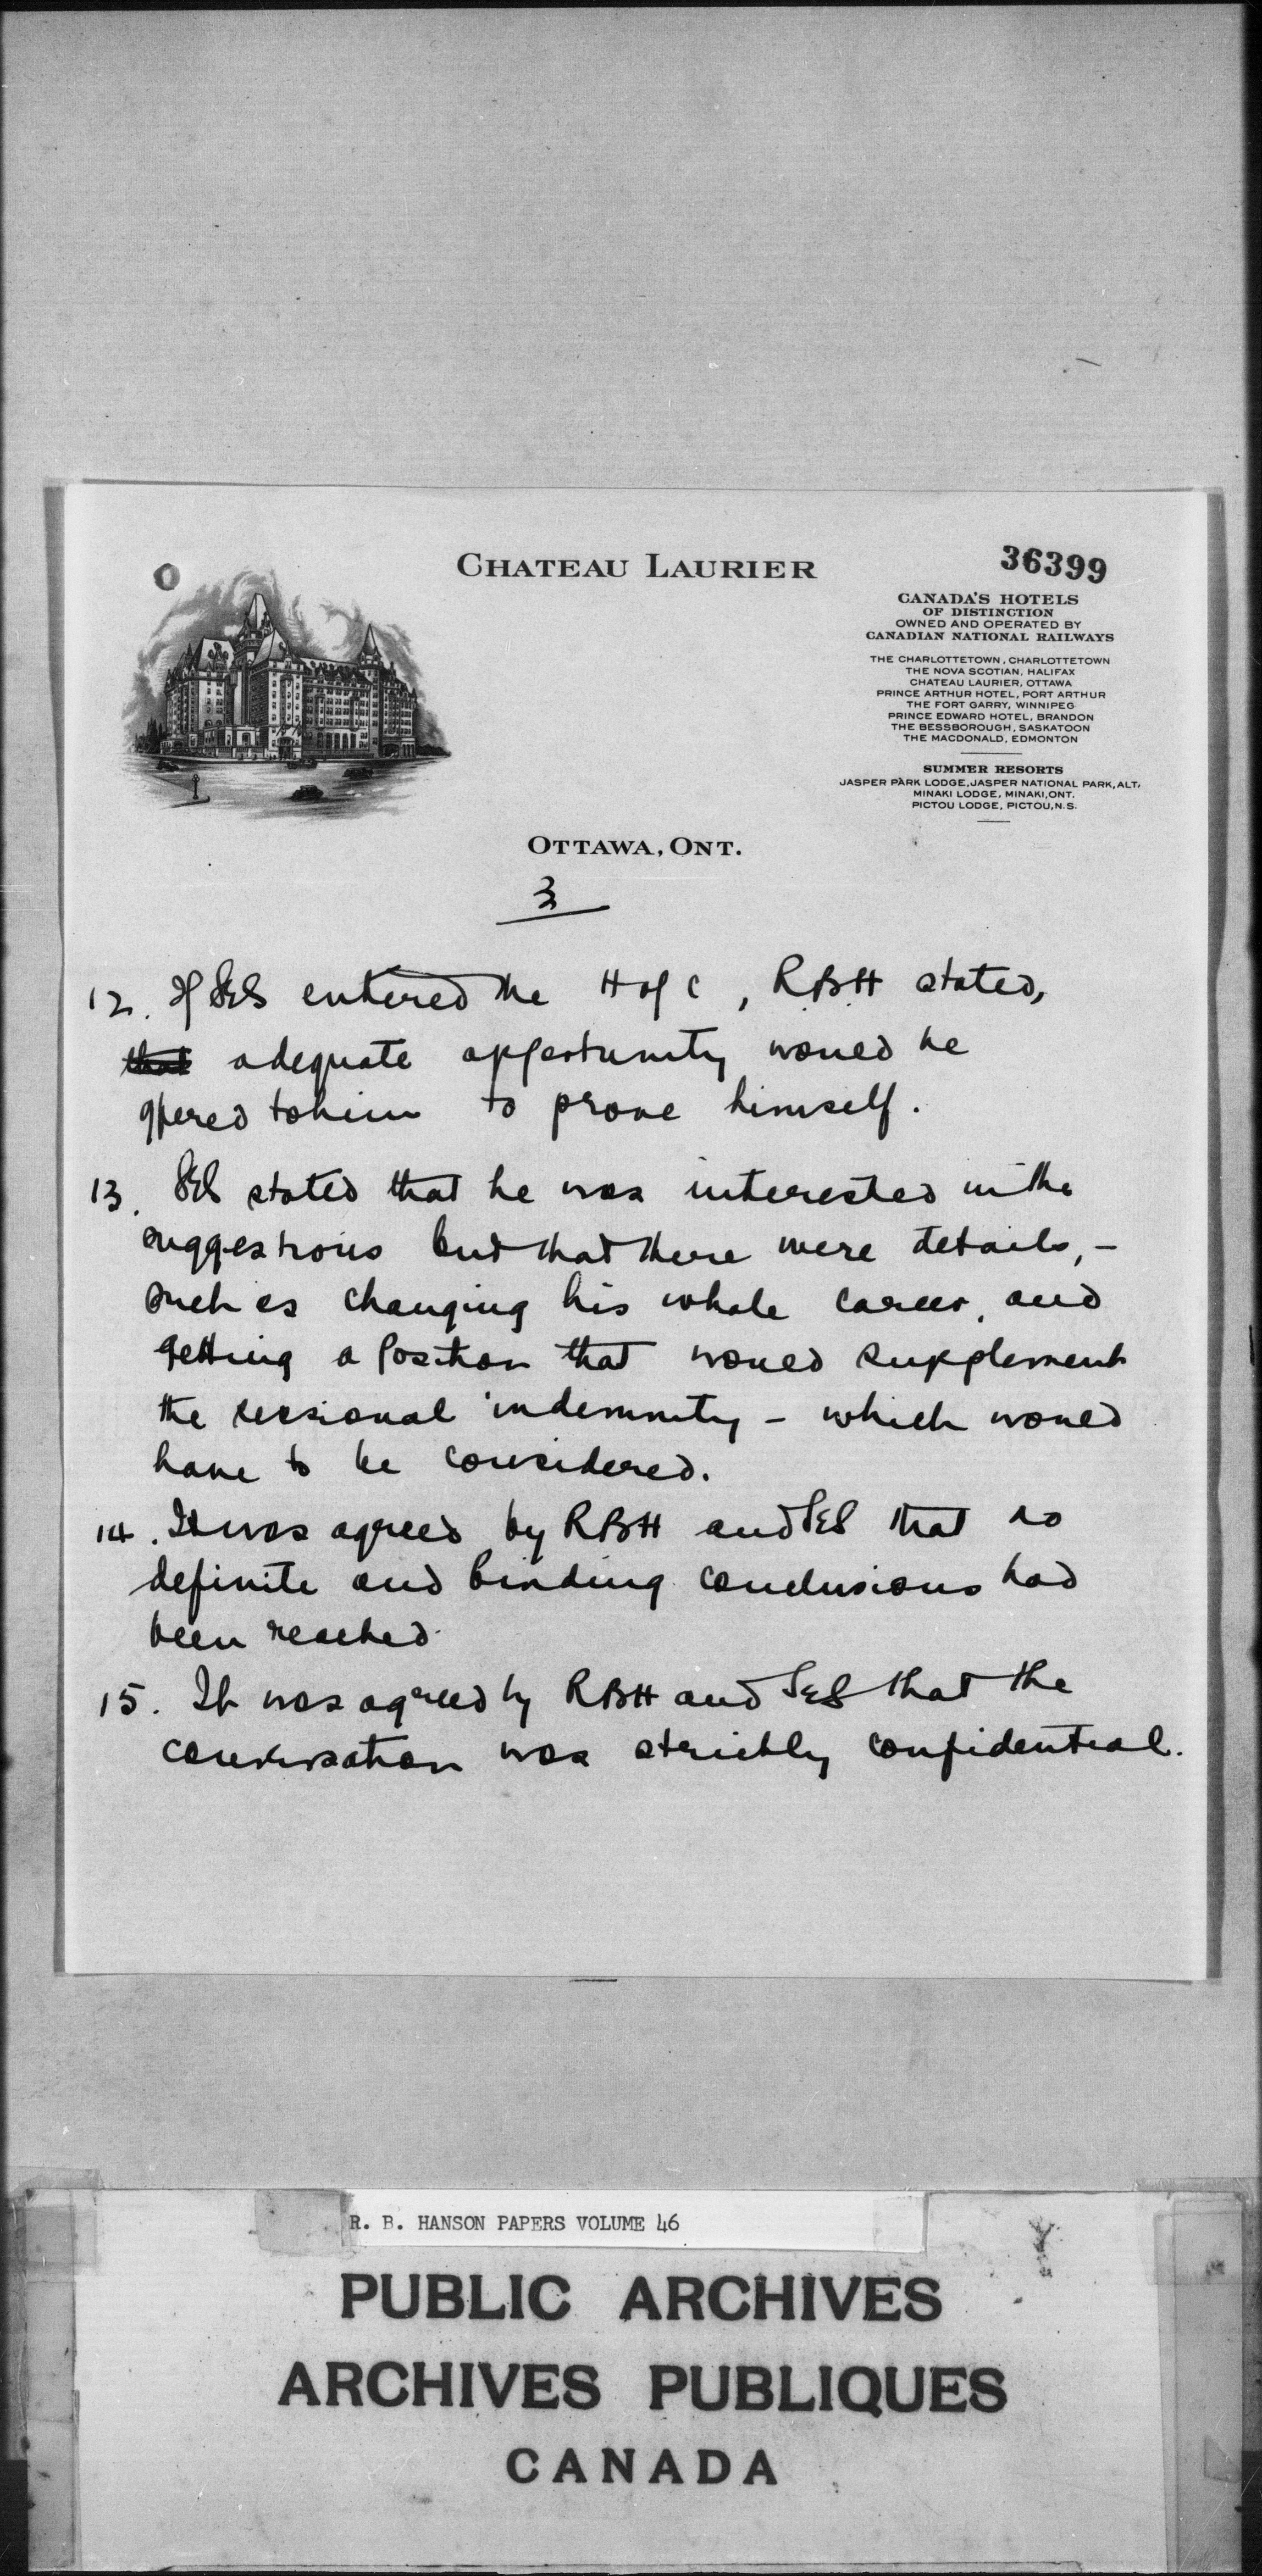 CHATEAU LAURIER
36399
CANADA'S HOTELS
OF DISTINCTION
OWNED AND OPERATED BY
CANADIAN NATIONAL RAILWAYS
THE CHARLOTTETOWN, CHARLOTTETOWN
THE NOVA SCOTIAN, HALIFAX
CHATEAU LAURIER, OTTAWA
PRINCE ARTHUR HOTEL, PORT ARTHUR
THE FORT GARRY, WINNIPEG
PRINCE EDWARD HOTEL, BRANDON
THE BESSBOROUGH, SASKATOON
THE MACDONALD, EDMONTON
SUMMER RESORTS
JASPER PARK LODGE, JASPER NATIONAL PARK, ALT.
MINAKI LODGE, MINAKI, ONT.
PICTOU LODGE, PICTOU, N.S.
OTTAWA, ONT.
3
12. If SES entered the H of C, RBH stated,
that adequate opportunity would be
offered to him to prove himself.
13. SES stated that he was interested in the
suggestions but that there were details, -
such as changing his whole career, and
getting a position that would supplement
the sessional indemnity - which would
have to be considered.
14. It was agreed by RBH and SES that no
definite and binding conclusions had
been reached.
15. It was agreed by RBH and SES that the
conversation was strictly confidential.
R. B. HANSON PAPERS VOLUME 46
PUBLIC ARCHIVES
ARCHIVES PUBLIQUES
CANADA